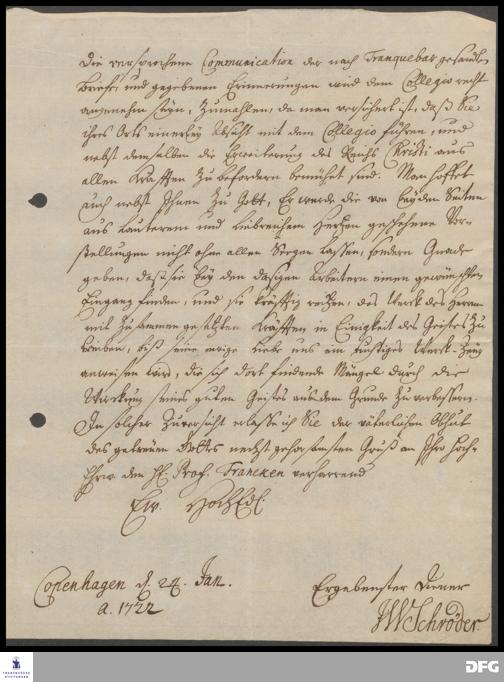 Die versprochene Communication der nach Tranquebar gesandten
Briefe, und gegebenen Erinnerungen wird dem Collegio recht
angenehm seyn, zumahlen, da man versichert ist, daß Sie
ihres Orts einerley Absicht mit dem Collegio führen, und
nebst demselben die Erweiterung des Reichs Christi aus
allen Kräfften zu befördern bemühet sind. Man hoffet
auch nebst Ihnen zu Gott, Er werde die von beyden Seiten
aus lauterem und liebreichem Hertzen geschehene Vor-
stellungen nicht ohne allen Seegen lassen, sondern Gnade
geben, daß sie bey den dasigen Arbeitern einen gewünschten
Eingang finden, und sie kräfftig reitzen, das Werck des Herrn
mit zusammen gesetzten Kräfften in Einigkeit des Geistes zu
treiben, biß seine ewige Liebe uns ein tüchtiges Werck-Zeug
anweisen wird, die sich dort findende Mängel durch die
Würckung seines guten Geistes aus dem Grunde zu verbessern.
In solcher Zuversicht erlasse ich Sie der väterlichen Obhut
des getreuen Gottes nechst gehorsamsten Gruß an Ihro Hoch-
Ehrw. den H. Prof. Francken verharrend
Ew. HochEdl.
Copenhagen d. 24. Jan.
a. 1722
Ergebenster Diener
JWSchröder
FRANCKESCHE
STIFTUNGEN
DFG